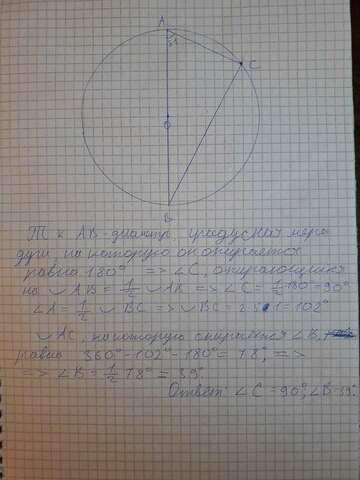 A
51
C
O
B
Т к AB-диаметр, градусная мера
дуги, на которую он опирается
равна 180° => ∠C, опирающийся
на ◡AB = 1/2 ◡AB => ∠C = 1/2 180° = 90°
∠A = 1/2 ◡BC => ◡BC = 2·51 = 102°
◡AC, на которую опирается ∠B,
равна 360° - 102° - 180° = 78°, =>
=> ∠B = 1/2 78° = 39°
Ответ: ∠C = 90°; ∠B = 39°.